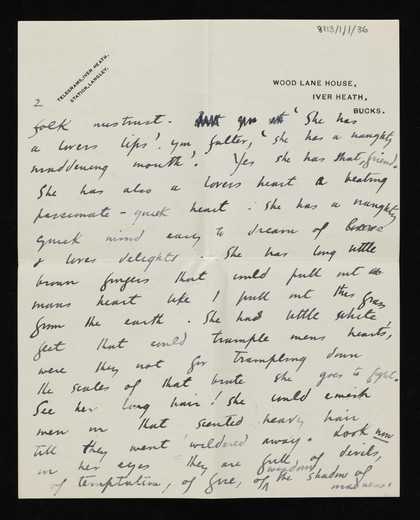 8113/1/1/36
TELEGRAMS, IVER HEATH.
STATION, LANGLEY.
WOOD LANE HOUSE,
IVER HEATH,
BUCKS.
2
folk mistrust. "She has
a lovers lips! you falter, "she has a naughty
maddening mouth'. Yes she has that, friend.
She has also a lovers heart a beating
passionate - quick heart: She has a naughty
quick mind early to dream of
& loves delights. She has long little
brown fingers that could pull out a
mans heart like I pull out this grass
from the earth. She had little white
feet that could trample mens hearts,
were they not for trampling down
the scales of that brute she goes to fight.
See her long hair! She could
men in that scented heavy hair
till they went 'wildered away. Look now
in her eyes they are full of devils,
of temptation, of fire, of wisdom, of the shadow of
madness!